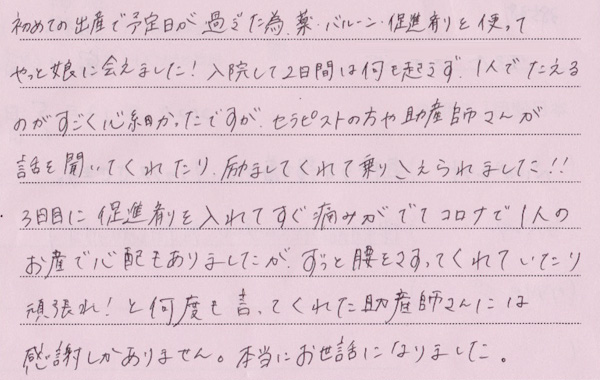 初めての出産で予定日が過ぎた為、薬・バルーン・促進剤を使って
やっと娘に会えました！入院して2日間は何も起こらず、1人でたえる
のがすごく心細かったですが、セラピストの方や助産師さんが
話を聞いてくれたり、励ましてくれて乗りこえられました!!
3日目に促進剤を入れてすぐ痛みがでてコロナで1人の
お産で心配もありましたが、ずっと腰をさすってくれていたり
頑張れ！と何度も言ってくれた助産師さんには
感謝しかありません。本当にお世話になりました。